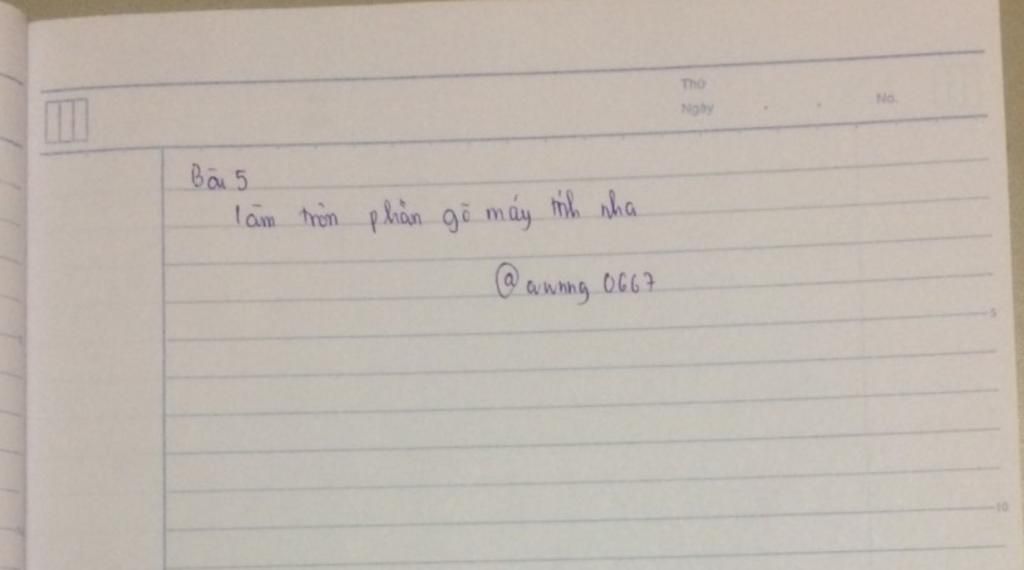 Thứ
Ngày . . No.
Bài 5
làm tròn phần gõ máy tính nha
@awnng 0667
5
10